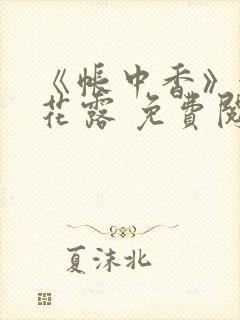 《帐中香》
花露 免費閱
夏沫北